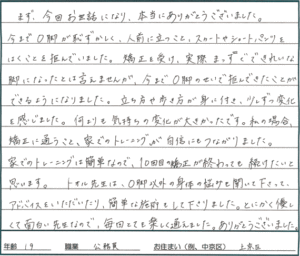 まず、今回お世話になり、本当にありがとうございました。
今までO脚が恥ずかしく、人前に立つこと、スカートやショートパンツを
はくことを拒んでいました。矯正を受け、実際まっすぐできれいな
脚になったとは言えませんが、今までO脚のせいで拒んできたことが
できるようになりました。立ち方や歩き方が身に付き、少しずつ変化
を感じました。何よりも気持ちの変化が大きかったです。私の場合、
矯正に通うこと、家でのトレーニングが自信にもつながりました。
家でのトレーニングは簡単なので、10回目の矯正が終わっても続けたいと
思います。トオル先生は、O脚以外の身体の悩みを聞いて下さって、
アドバイスをいただいたり、簡単な施術をして下さりました。とにかく優しく
て面白い先生なので、毎回とても楽しく通えました。ありがとうございました。
年齢 19 職業 公務員 お住まい(例、中京区) 上京区